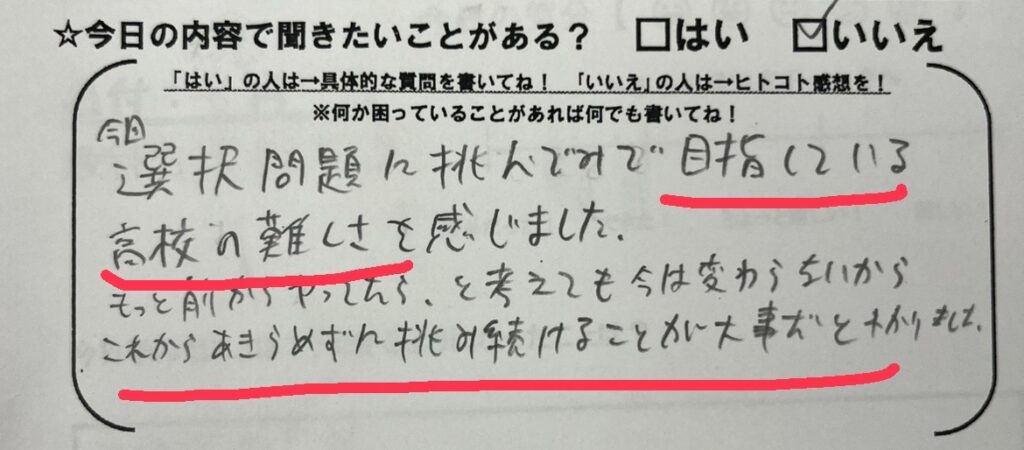 ☆今日の内容で聞きたいことがある？ □はい ☑いいえ
「はい」の人は→具体的な質問を書いてね！ 「いいえ」の人は→ヒトコト感想を！
※何か困っていることがあれば何でも書いてね！
今回
選択問題に挑んでみて 目指している
高校の難しさを感じました.
もっと前からやってたら、と考えても今は変わらないから
これからあきらめずに挑み続けることが大事だとわかりました.